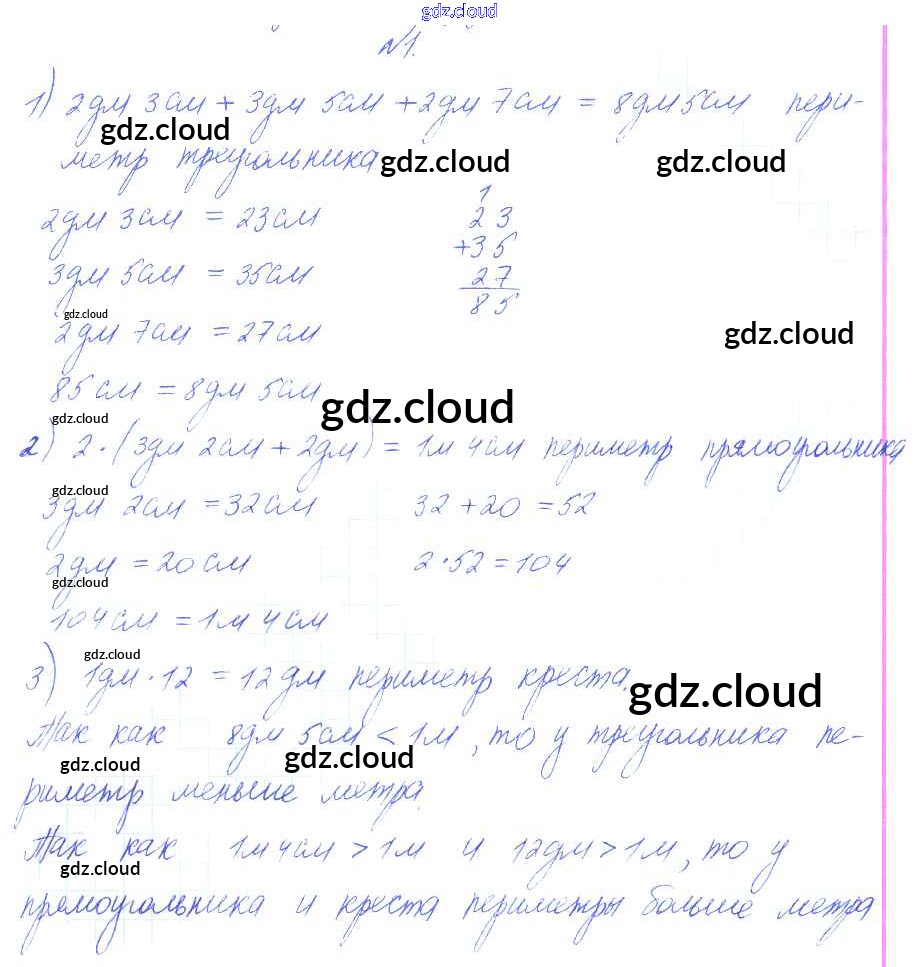 gdz.cloud
№1.
1) 2дм 3см + 3дм 5см + 2дм 7см = 8дм 5см пери-
gdz.cloud
метр треугольника gdz.cloud gdz.cloud
1
2дм 3см = 23см 23
+35
3дм 5см = 35см 27
85
gdz.cloud
2дм 7см = 27см gdz.cloud
85см = 8дм 5см
gdz.cloud gdz.cloud
2) 2·(3дм 2см + 2дм) = 1м 4см периметр прямоугольника
gdz.cloud
3дм 2см = 32см 32 + 20 = 52
2дм = 20см 2·52 = 104
gdz.cloud
104см = 1м 4см
gdz.cloud
3) 1дм·12 = 12дм периметр креста. gdz.cloud
Так как 8дм 5см < 1м, то у треугольника пе-
gdz.cloud gdz.cloud
риметр меньше метра.
Так как 1м 4см > 1м и 12дм > 1м, то у
gdz.cloud
прямоугольника и креста периметры больше метра